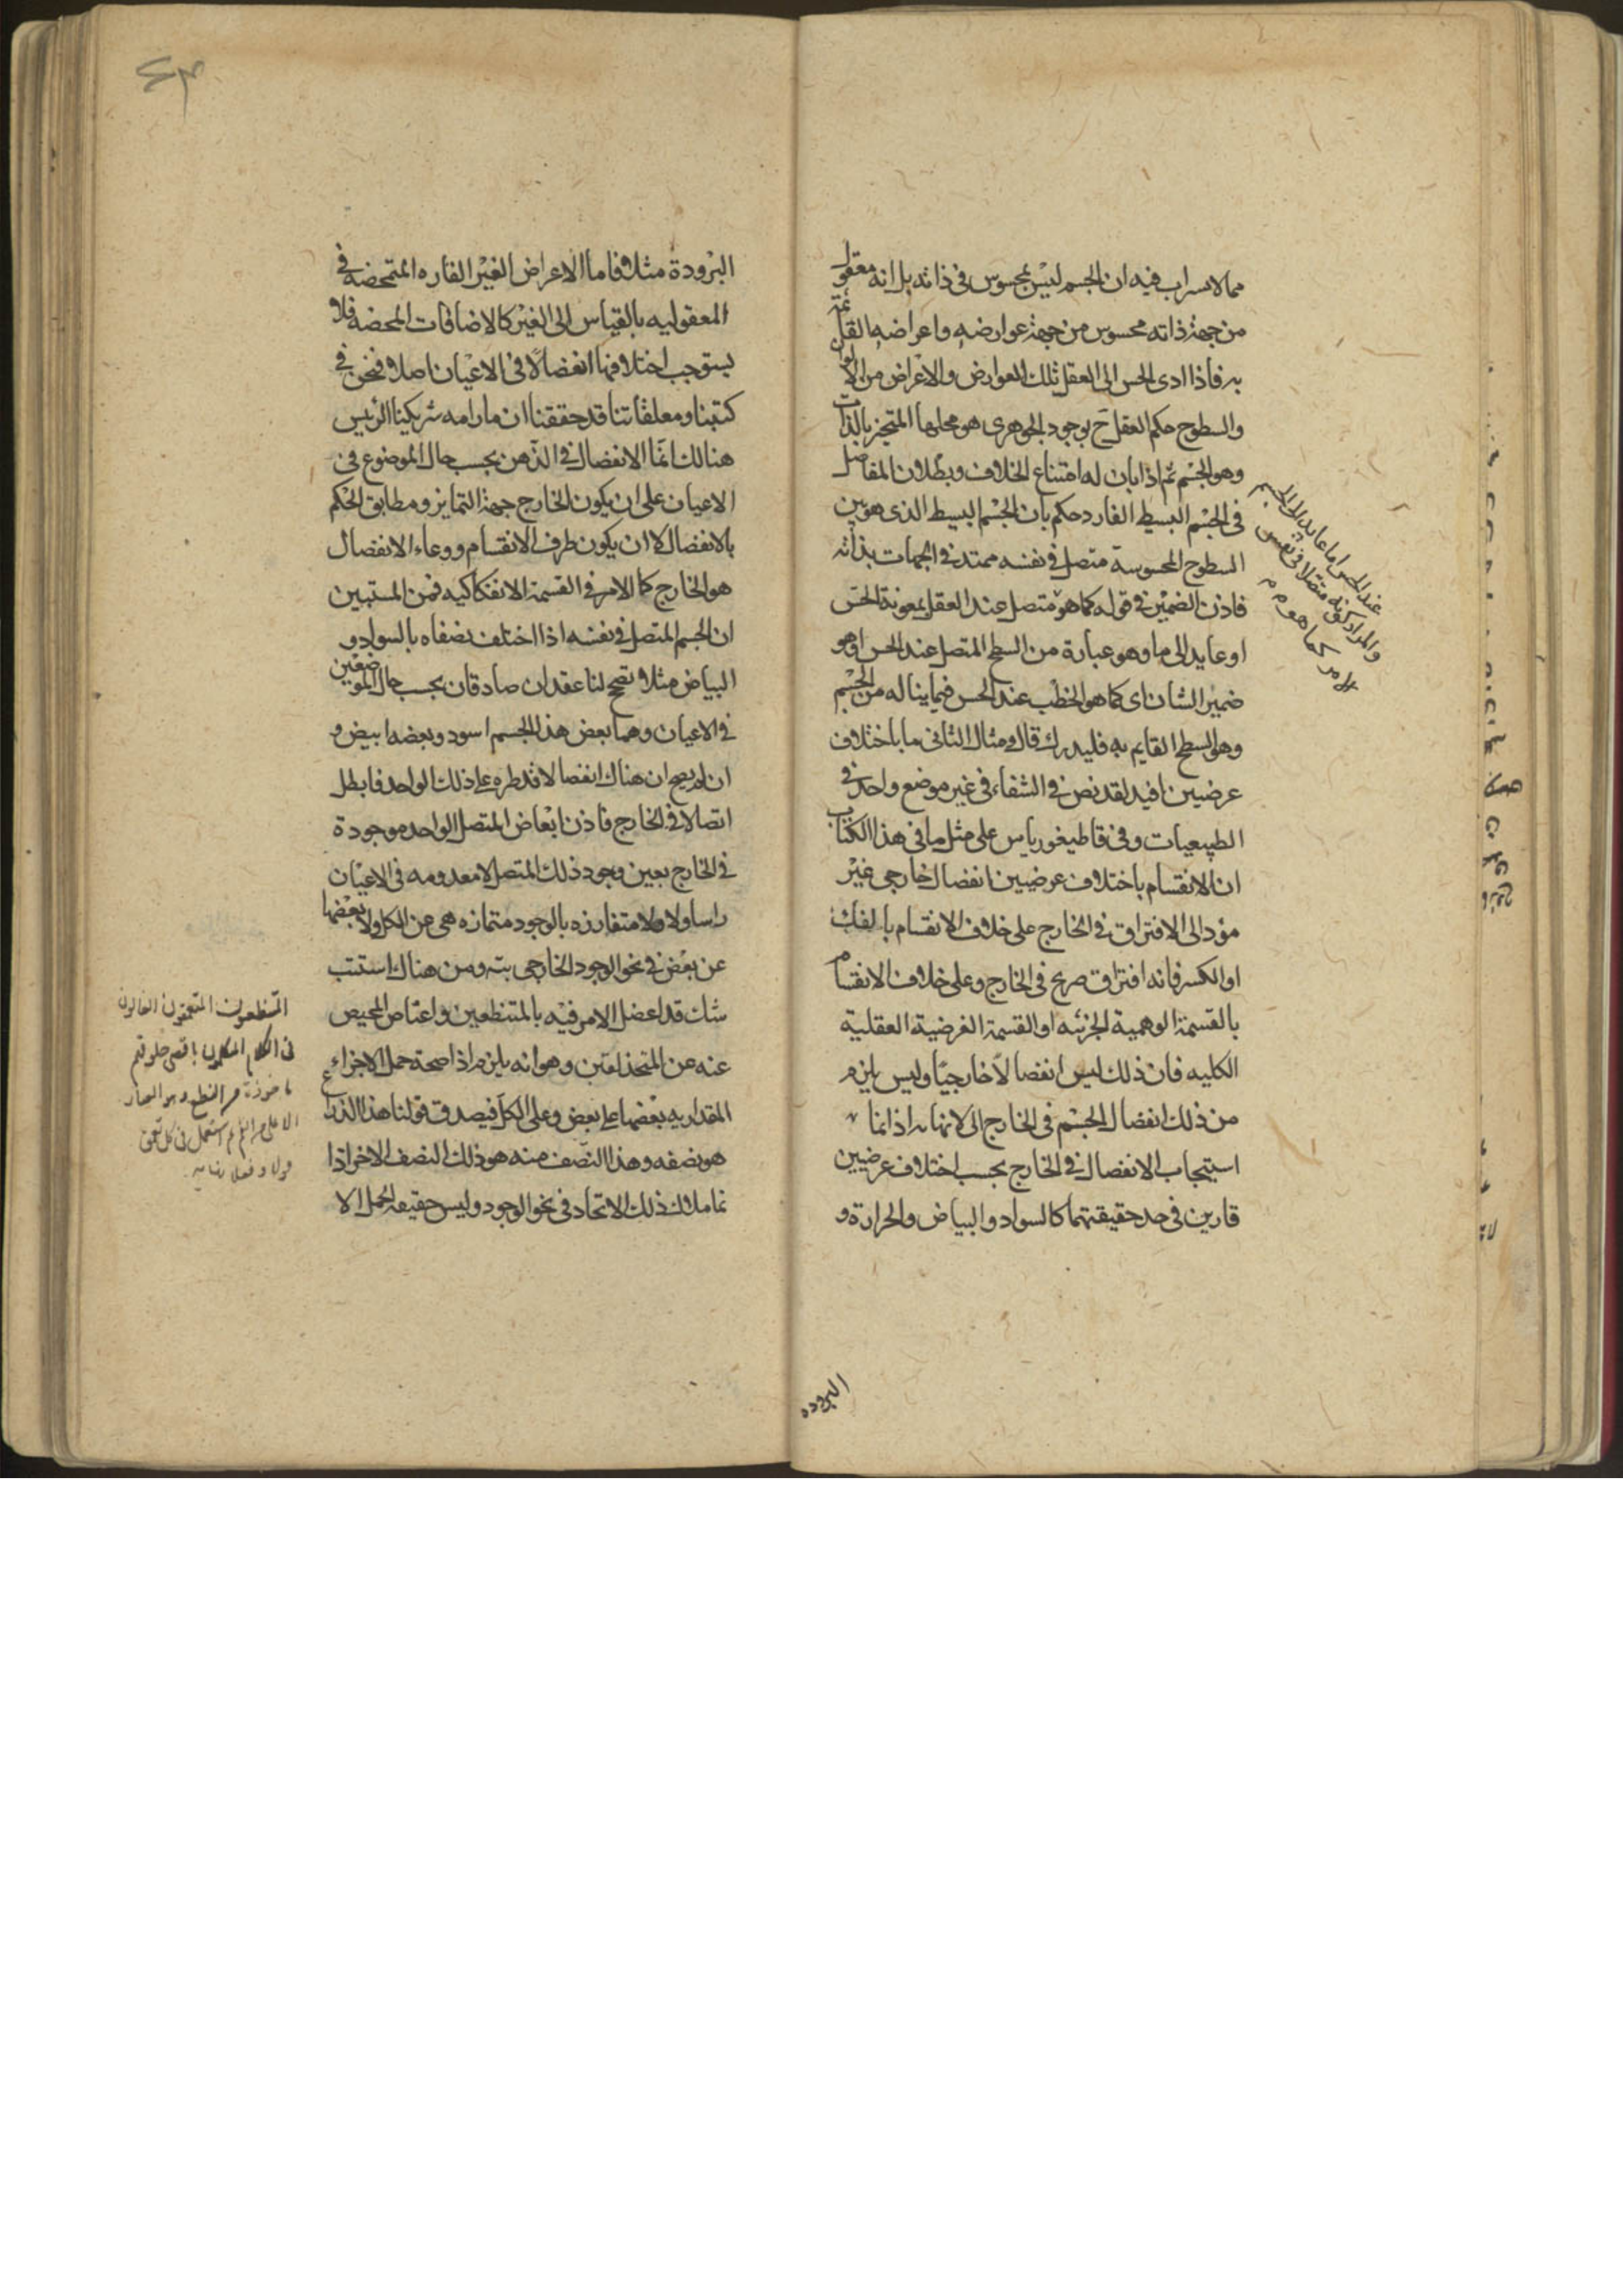 مما لا يسراب فيه ان الجسم ليس بمحسوس فى ذاته بل انه معقول
من جهة ذاته محسوس من جهة عوارضه واعراضه القائمة
به فاذا ادى الحس الى العقل تلك العوارض والاعراض من الالوان
والسطوح حكم العقل ح بوجود الجوهرى هو محلها المتحيز بالذات
وهو الجسم ثم اذا بان له امتناع الخلاف وبطلان المفاصل
فى الجسم البسيط الفارد حكم بان الجسم البسيط الذى هو بين
السطوح المحسوسة متصل فى نفسه ممتد فى الجهات بذاته
فاذن الضمير فى قوله كما هو متصل عند العقل بمعونة الحس
او عايد الى ما وهو عبارة من السطح المتصل عند الحس او هو
ضمير الشان اى كما هو الخطب عند الحس فيما يناله من الجسم
وهو السطح القايم به فليدرك قال ومثال الثانى ما باختلاف
عرضيين افيد لقد نص فى الشفاء فى غير موضع واحد فى
الطبيعيات وفى قاطيغورياس على مثل ما فى هذا الكتاب
ان الانقسام باختلاف عرضيين انفصال خارجى غير
مؤد الى الافتراق فى الخارج على خلاف الانقسام بالفك
او الكسر فانه افتراق صريح فى الخارج وعلى خلاف الانقسام
بالقسمة الوهمية الجزئيه او القسمة الفرضية العقلية
الكليه فان ذلك ليس انفصالا خارجيا وليس يلزم
من ذلك انفصال الجسم فى الخارج الى لا نهايه اذ انما
استيجاب الانفصال فى الخارج بحسب اختلاف عرضيين
قارين فى حد حقيقتهما كالسواد والبياض والحرارة و
عند الحس اما عايد الى الجسم
والمراد كونه متصلا فى نفس
الامر كما هو م م
البروده
٤٣
البرودة مثلا فاما الاعراض الغير القاره المتمحضه فى
المعقوليه بالقياس الى الغير كالاضافات المحضه فلا
يستوجب اختلافها انفصالا فى الاعيان اصلا ونحن فى
كتبنا ومعلقاتنا قد حققنا ان ما رامه شريكنا الرئيس
هنالك انما الانفصال فى الذهن بحسب حال الموضوع فى
الاعيان على ان يكون الخارج جهة التمايز ومطابق الحكم
بالانفصال لا ان يكون ظرف الانقسام ووعاء الانفصال
هو الخارج كما الامر فى القسمة الانفكاكيه فمن المستبين
ان الجسم المتصل فى نفسه اذا اختلف نصفاه بالسواد و
البياض مثلا تصح لنا عقدان صادقان بحسب حال الموضعين
فى الاعيان وهما بعض هذا الجسم اسود وبعضه ابيض و
ان لم يصح ان هناك انفصالا قد طره على ذلك الواحد فابطل
اتصالا فى الخارج فاذن ابعاض المتصل الواحد موجودة
فى الخارج بعين وجود ذلك المتصل لا معدومه فى الاعيان
راسا ولا متفارزه بالوجود متمازه هى عن الكل ولا بعضها
عن بعض فى نحو الوجود الخارجى بته ومن هناك استتب
شك قد اعضل الامر فيه بالمتنطعين واعتاص المحيص
عنه عن المتحذلقين وهو انه يلزم اذا صحة حمل الاجزاء
المقداريه بعضها على بعض وعلى الكل فيصدق قولنا هذا الذراع
هو نصفه وهذا النصف منه هو ذلك النصف الاخر اذا
ما ملاك ذلك الاتحاد فى نحو الوجود وليس حقيقه الحمل الا
المتنطعون المتعمقون الغالون
فى الكلام المتكلمون باقصى حلوقهم
ماخوذة من النطع وهو الغار
الاعلى من الفم ثم استعمل فى كل تعمق
قولا وفعلا